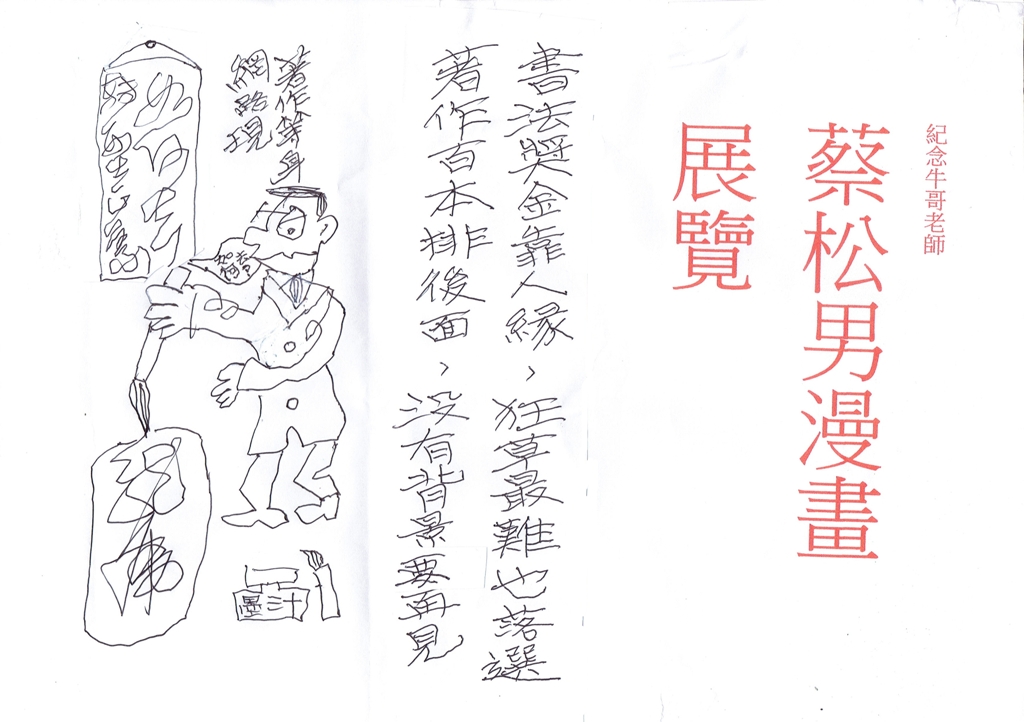 紀念牛哥老師
蔡松男漫畫
展覽
書法獎金靠人緣，狂草最難也落選
著作百本排後面，沒有背景要再見
著作等身
網路現
墨汁